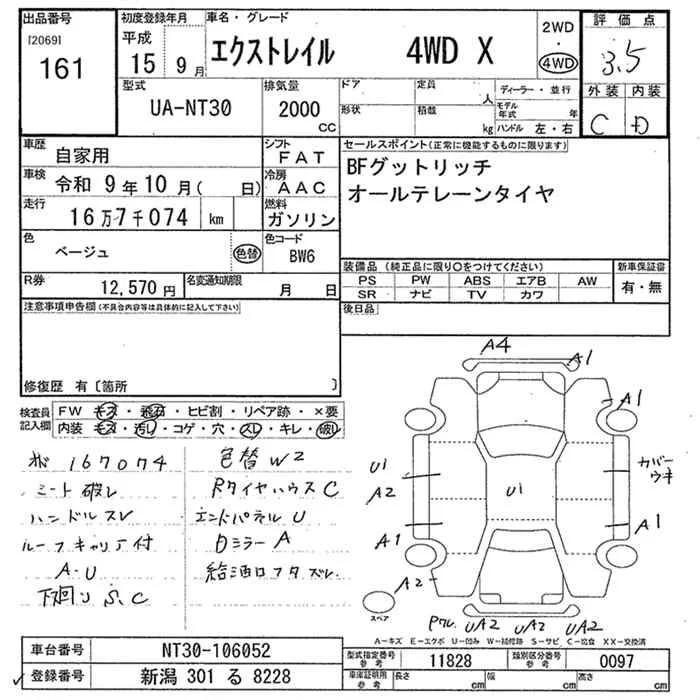 出品番号
[2069]
161
初度登録年月
平成
15 年 9 月
車名・グレード
エクストレイル 4WD X
2WD
・
4WD
評価点
3.5
外装 内装
C D
型式
UA-NT30
排気量
2000
CC
ドア
形状
定員
人
積載
kg
ディーラー・並行
モデル年式 年
ハンドル 左・右
車歴
自家用
シフト
FAT
車検
令和 9年 10月 ( 日)
冷房
AAC
走行
16万7千074 km
燃料
ガソリン
色
ベージュ
色替
色コード
BW6
R券
12,570 円
名変通知期限
月 日
セールスポイント(正常に機能するものに限ります)
BFグットリッチ
オールテレーンタイヤ
装備品 (純正品に限り〇をつけてください)
PS PW ABS エアB AW
SR ナビ TV カワ
新車保証書
有・無
後日品
注意事項申告欄(不具合内容等は具体的に記入して下さい)
修復歴 有〔箇所 〕
検査員記入欄
FW キズ・飛石・ヒビ割・リペア跡・×要
内装 キズ・汚レ・コゲ・穴・スレ・キレ・破レ
167074
シート破レ
ハンドルスレ
ルーフキャリア付
A・U
下廻り S、C
色替 W2
RタイヤハウスC
エンドパネル U
Dミラー A
給油口フタズレ
A4
A1
A1
U1
A2
U1
カバーウキ
A1
A1
A2
スペア
UA2 UA2 UA2
A-キズ E-エクボ U-凹み W-補修跡 S-サビ C-腐食 XX-交換済
車台番号
NT30-106052
登録番号
新潟 301 る 8228
型式指定番号
参考
11828
類別区分番号
参考
0097
車庫証明用
参考
長さ cm
幅 cm
高さ cm